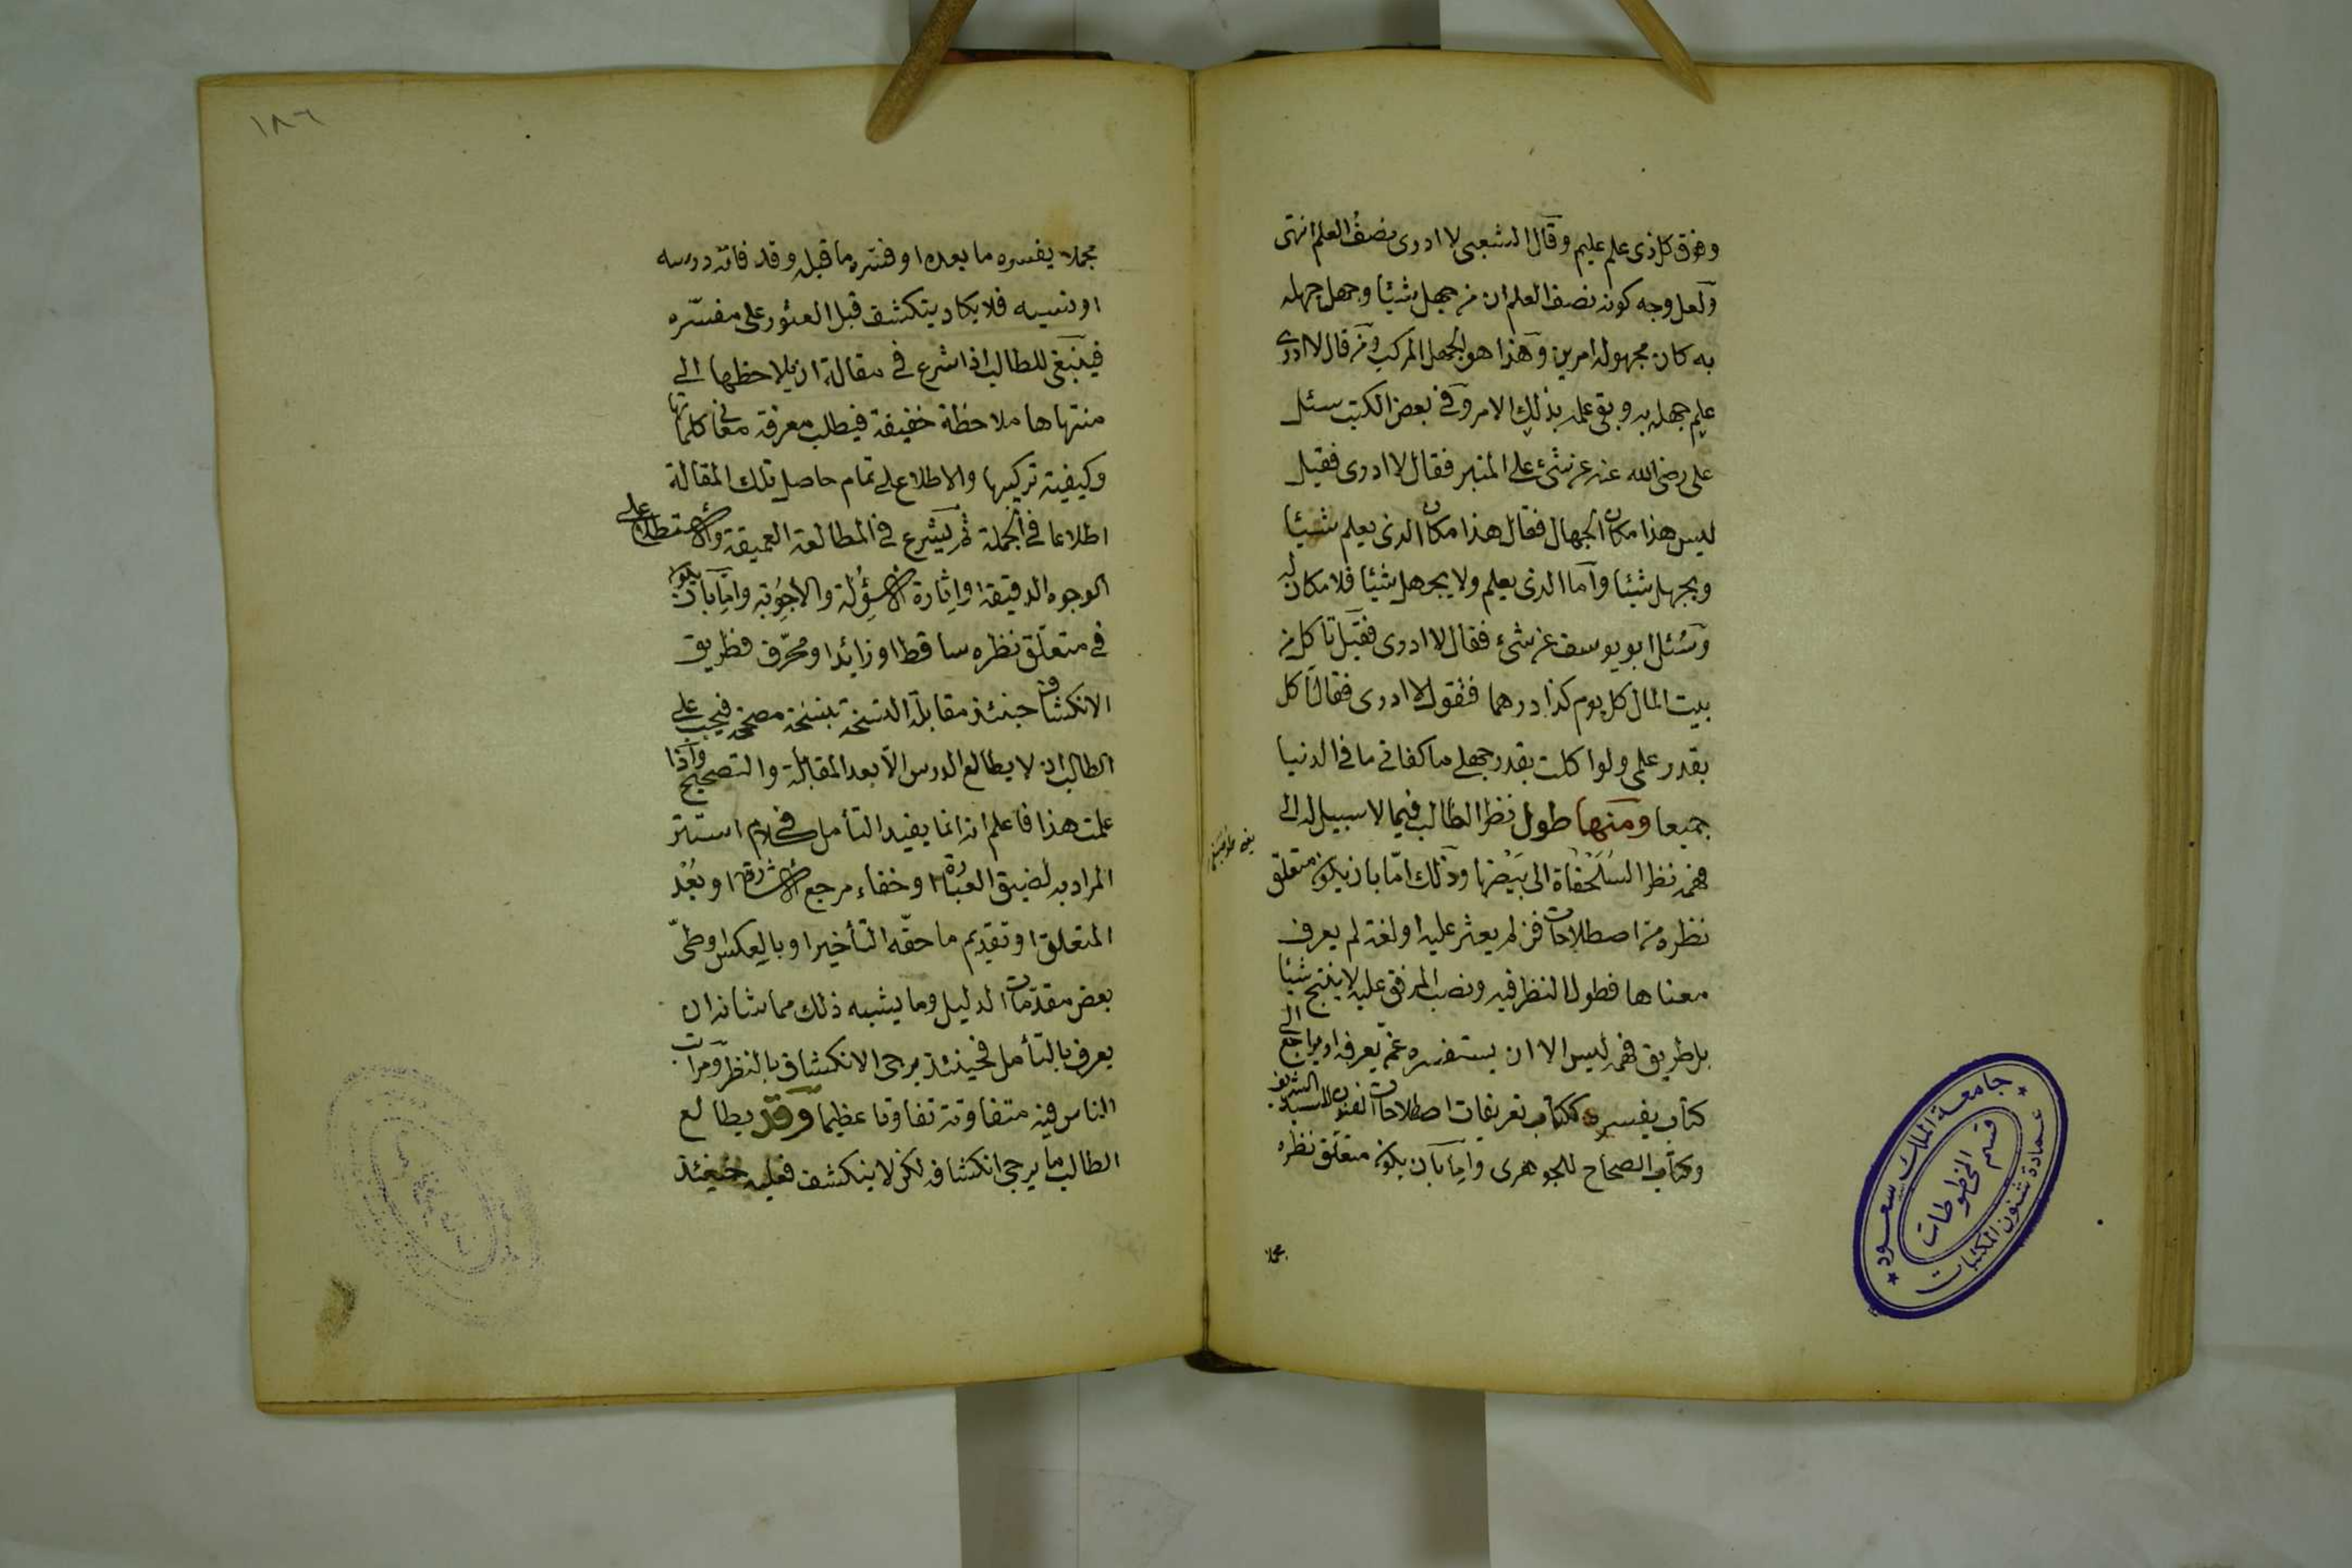 وفوق كل ذى علم عليم وقال الشعبى لا ادرى نصف العلم انتهى
ولعل وجه كونه نصف العلم ان من جهل شيئا وجهل جهله
به كان مجهوله امرين وهذا هو الجهل المركب ومن قال لا ادرى
علم جهله به وبقى علمه بذلك الامر وفى بعض الكتب سئل
على رضى الله عنه عن شئ على المنبر فقال لا ادرى فقيل
ليس هذا مكان الجهال فقال هذا مكان الذى يعلم شيئا
ويجهل شيئا واما الذى يعلم ولا يجهل شيئا فلا مكان له
وسئل ابو يوسف عن شئ فقال لا ادرى فقيل تاكل من
بيت المال كل يوم كذا درهما فتقول لا ادرى فقال اكل
بقدر علمى ولو اكلت بقدر جهلى ما كفانى ما فى الدنيا
جميعا ومنها طول نظر الطالب فيما لا سبيل له الى
فهمه نظر السلحفاة الى بيضها وذلك اما بان يكون متعلق
نظره من اصطلاحات فن لم يعثر عليه او لغة لم يعرف
معناها فطول النظر فيه ونصب المرفق عليه لا ينتج شيئا
بل طريق فهمه ليس الا ان يستفسره عمن يعرفه او يراجع الى
كتاب يفسره ككتاب تعريفات اصطلاحات الفنون للسيد الشريف
وكتاب الصحاح للجوهرى واما بان يكون متعلق نظره
مجملا
١٨٦
مجملا يفسره ما بعده او فسره ما قبله وقد فاته درسه
او نسيه فلا يكاد يتكشف قبل العثور على مفسره
فينبغى للطالب اذا شرع فى مقالة ان يلاحظها الى
منتهاها ملاحظة خفيفة فيطلب معرفة معانى كلماتها
وكيفية تركيبها والاطلاع على تمام حاصل تلك المقالة
اطلاعا فى الجملة ثم يشرع فى المطالعة العميقة والاستطلاع على
الوجوه الدقيقة واثارة الاسئولة والاجوبة واما بان يكون
فى متعلق نظره ساقط او زائد او محرف فطريق
الانكشاف حينئذ مقابلة النسخة بنسخة مصححة فيجب على
الطالب ان لا يطالع الدرس الا بعد المقابلة والتصحيح واذا
علمت هذا فاعلم انه انما يفيد التأمل فى كلام استتر
المراد به لضيق العبارة او خفاء مرجع الاشارة او بعد
المتعلق او تقديم ما حقه التأخير او بالعكس او طى
بعض مقدمات الدليل وما يشبه ذلك مما شانه ان
يعرف بالتأمل فحينئذ يرجى الانكشاف بالنظر ومراتب
الناس فيه متفاوتة تفاوتا عظيما وقد يطالع
الطالب ما يرجى انكشافه لكن لا ينكشف فعليه حينئذ
جامعة الملك سعود
عمادة شئون المكتبات
قسم المخطوطات